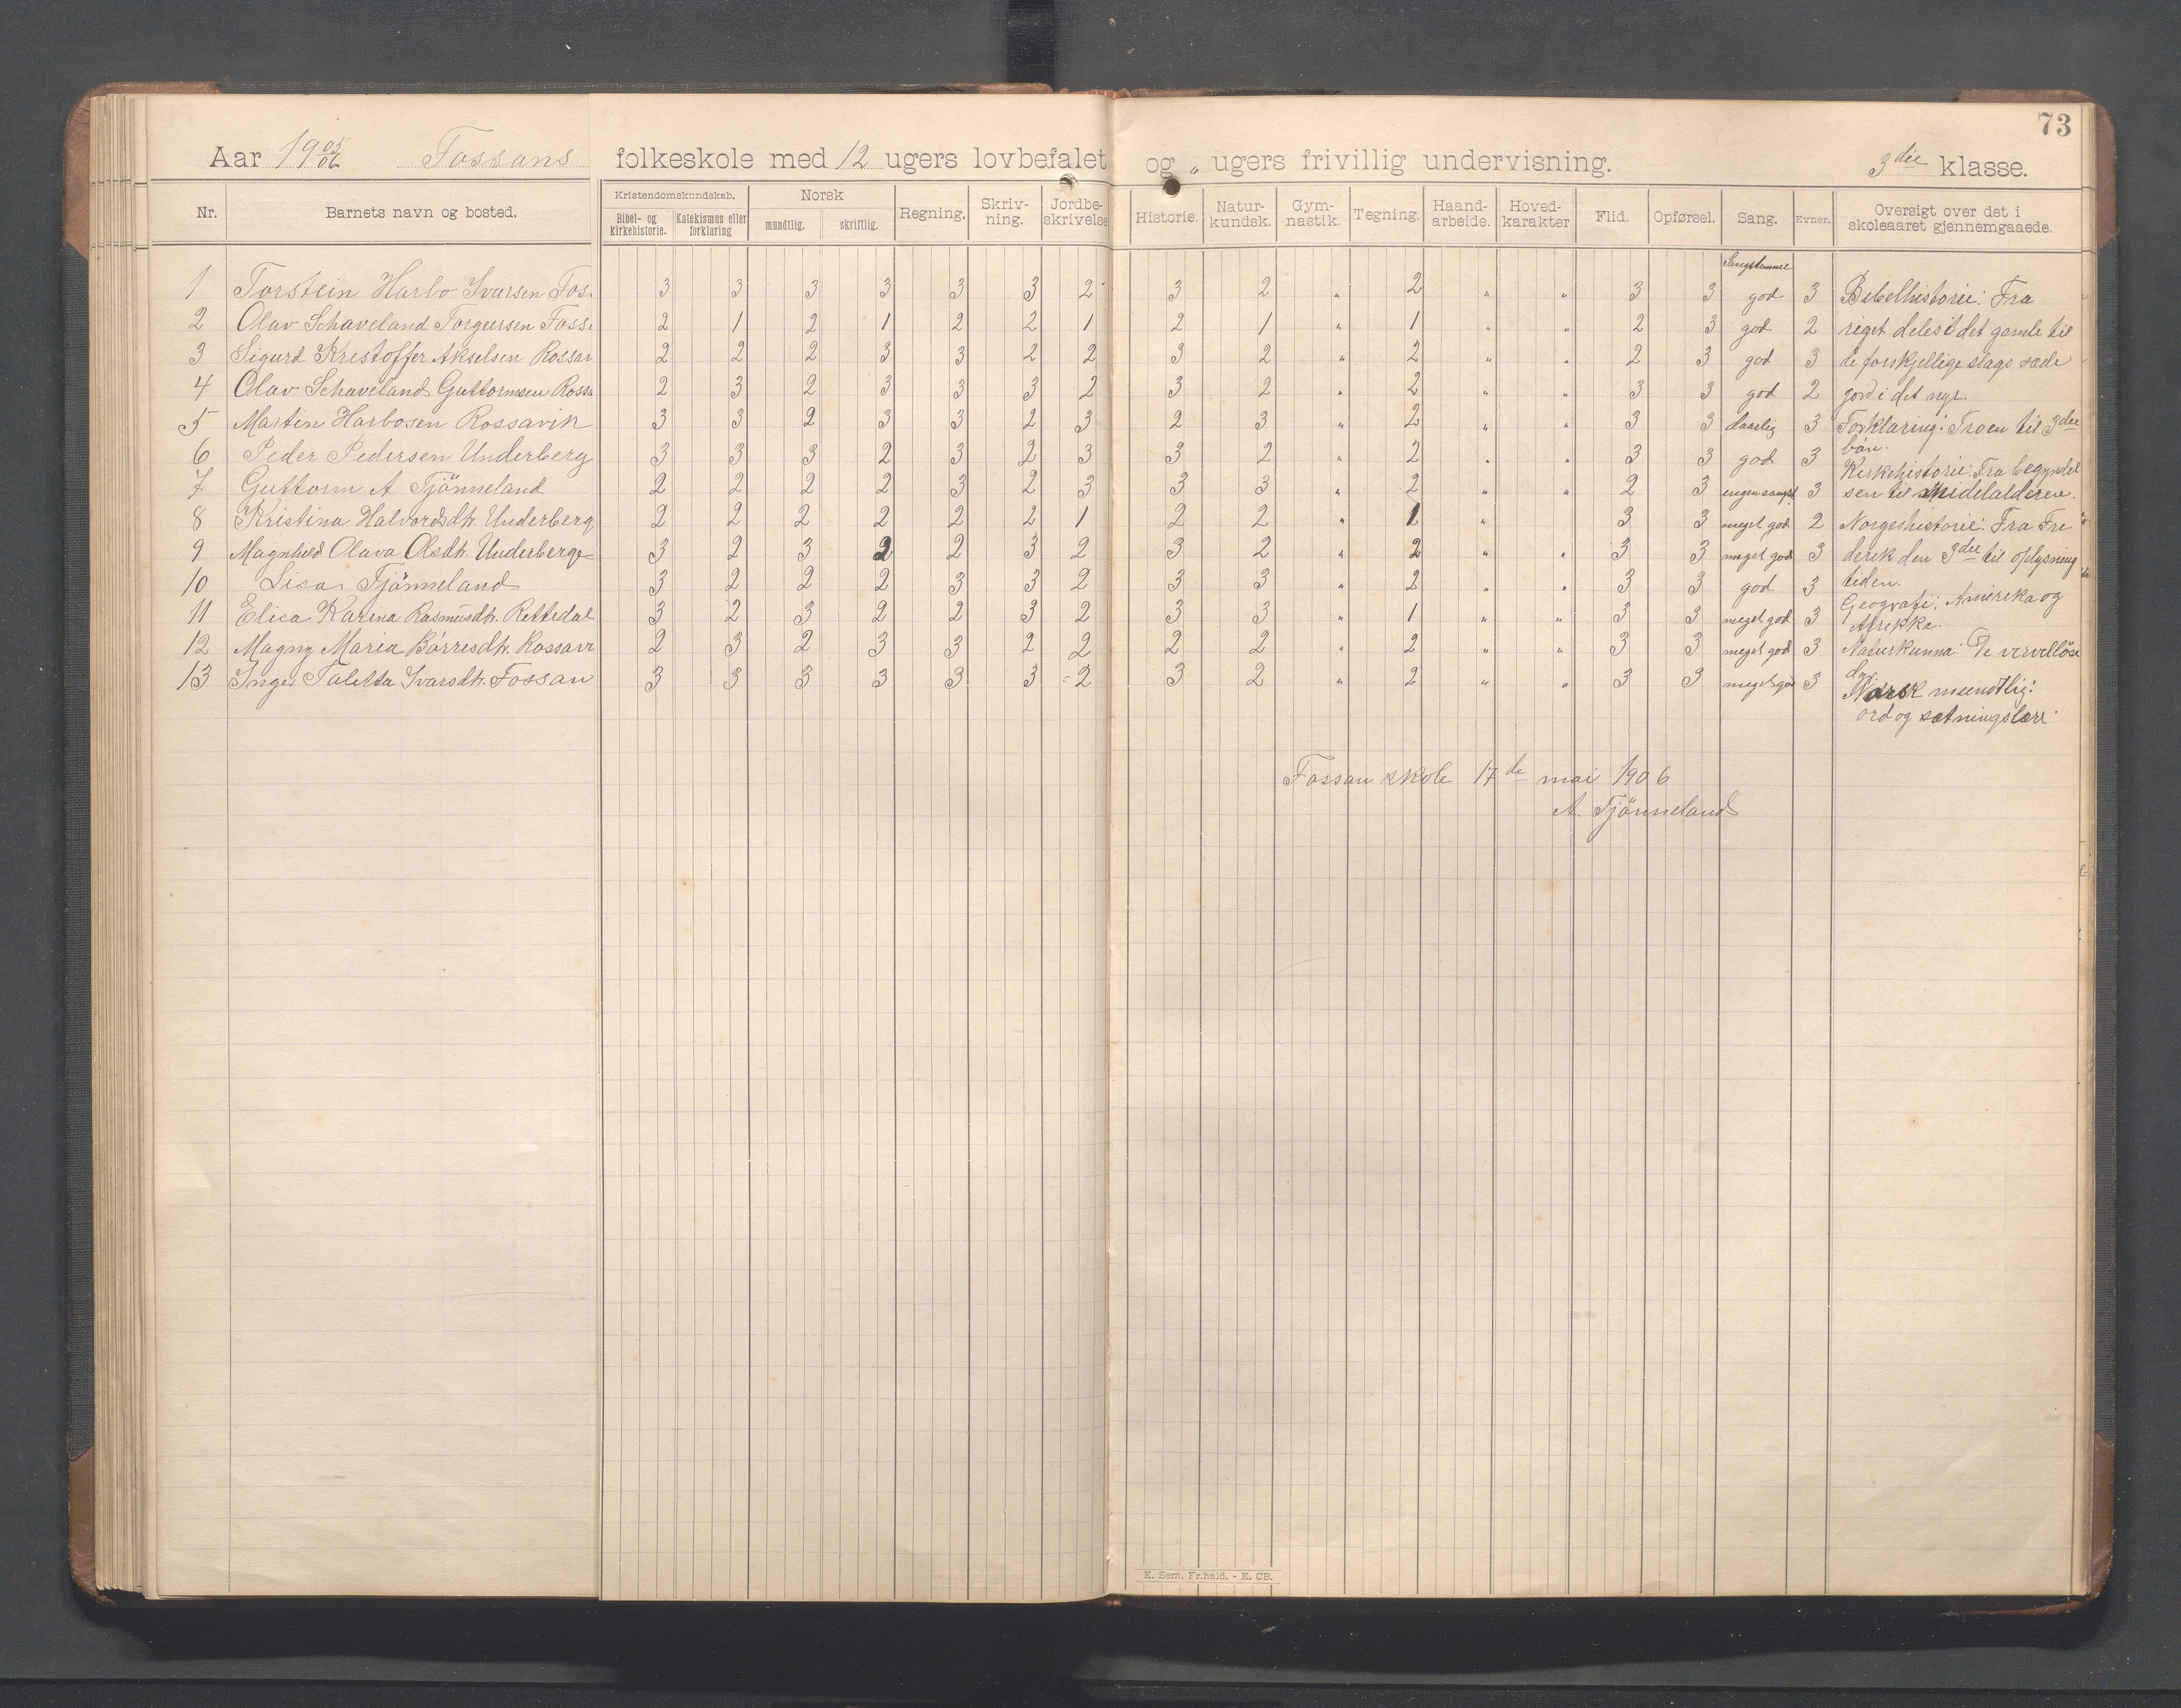 73
Aar 19 05/06 Fossans folkeskole med 12 ugers lovbefalet og „ ugers frivillig undervisning. 3die klasse.
Nr. Barnets navn og bosted. Kristendomskundskab. Bibel- og kirkehistorie. Katekismus eller forklaring Norsk mundtlig. skriftlig. Regning. Skriv-ning. Jordbe-skrivelse Historie. Natur-kundsk. Gym-nastik. Tegning. Haand-arbeide. Hoved-karakter Flid. Opførsel. Sang. Evner. Oversigt over det i skoleaaret gjennemgaaede.
Sangstemme
1 Torstein Harbo Ivarsen Fos 3 3 3 3 3 3 2 3 2 „ 2 „ „ 3 3 god 3 Bibelhistorie: Fra
2 Olav Schaveland Torgeirsen Foss 2 1 2 1 2 2 1 2 1 „ 1 „ „ 2 3 god 2 riget deles i det gamle til
3 Sigurd Kristoffer Akselsen Rossav 2 2 2 3 3 2 2 3 2 „ 2 „ „ 2 3 god 3 de forskjellige slags sæde
4 Olav Schaveland Guttormsen Rossa 2 3 2 3 3 3 2 3 2 „ 2 „ „ 3 3 god 2 jord i det nye.
5 Martin Harbosen Rossavik 3 3 2 3 3 2 3 2 3 „ 2 „ „ 3 3 daarlig 3 Forklaring: Troen til 3die
bøn.
6 Peder Pedersen Underberg 3 3 3 2 3 2 3 3 2 „ 2 „ „ 3 3 god 3 Kirkehistorie: Fra begyndel
7 Guttorm A. Tjönneland 2 2 2 2 3 2 3 3 3 „ 2 „ „ 2 3 ingen sangst. 3 sen til Midelalderen.
8 Kristina Halvordsdtr. Underberg 2 2 2 2 2 2 1 2 2 „ 1 „ 3 3 meget god 2 Norgeshistorie: Fra Fre
9 Magnhild Olava Olsdtr. Underberge 3 2 3 2 2 3 2 3 2 „ 2 „ „ 3 3 meget god 3 derik den 3die til oplysning
10 Lisa Tjönneland 3 2 2 2 3 3 2 3 3 „ 2 „ „ 3 3 god 3 tiden.
Geografi: Amerika og
11 Elisa Karina Rasmusdtr. Rettedal 3 2 3 2 2 3 2 3 3 „ 1 „ „ 3 3 meget god 3 Afrikka.
12 Magny Maria Børresdtr. Rossavi 2 3 2 3 3 2 2 2 2 „ 2 „ „ 3 3 meget god 3 Naturkunna: De virvelløse
dyr.
13 Inger Taletta Ivarsdtr. Fossan 3 3 3 3 3 3 2 3 2 „ 2 „ „ 3 3 meget god 3 Norsk mundtlig:
ord og sætningslære
Fossan skole 17de mai 1906
A. Tjönneland
E. Sem, Fr.hald. - E. CB.